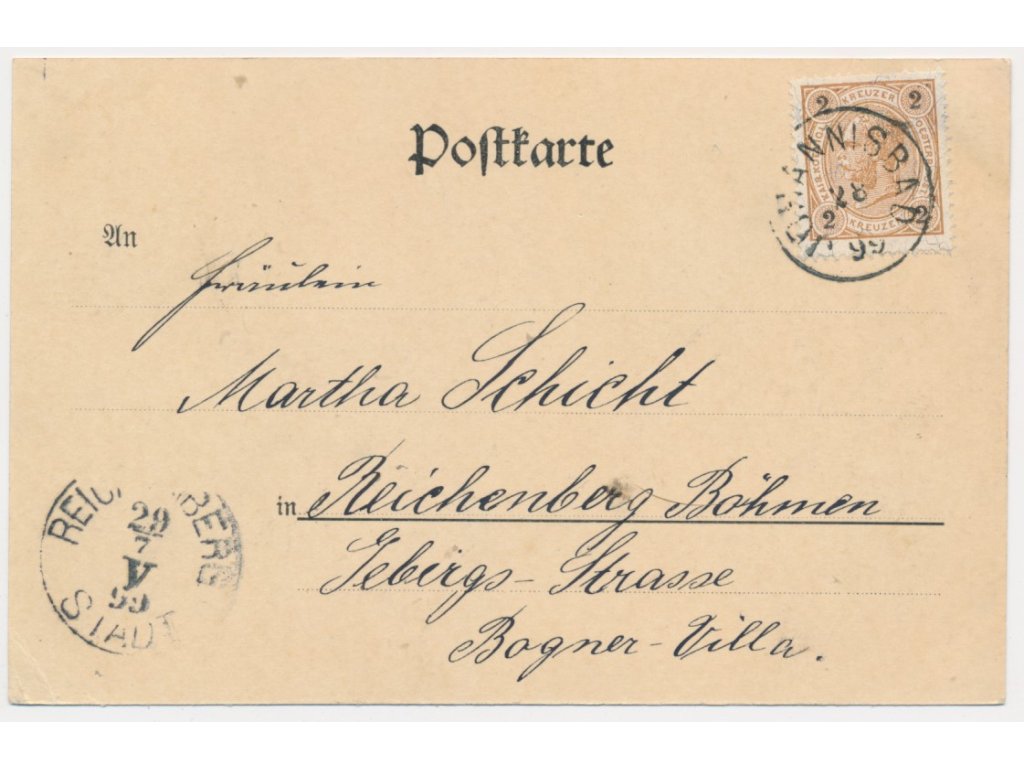 Postkarte
2 KREUZER 2
2 KREUZER 2
JOHANNISBAD
28
99
An
Fräulein
Martha Schicht
in Reichenberg Böhmen
Gebirgs-Strasse
Bogner-Villa.
REICHENBERG
29
7
V
99
STADT